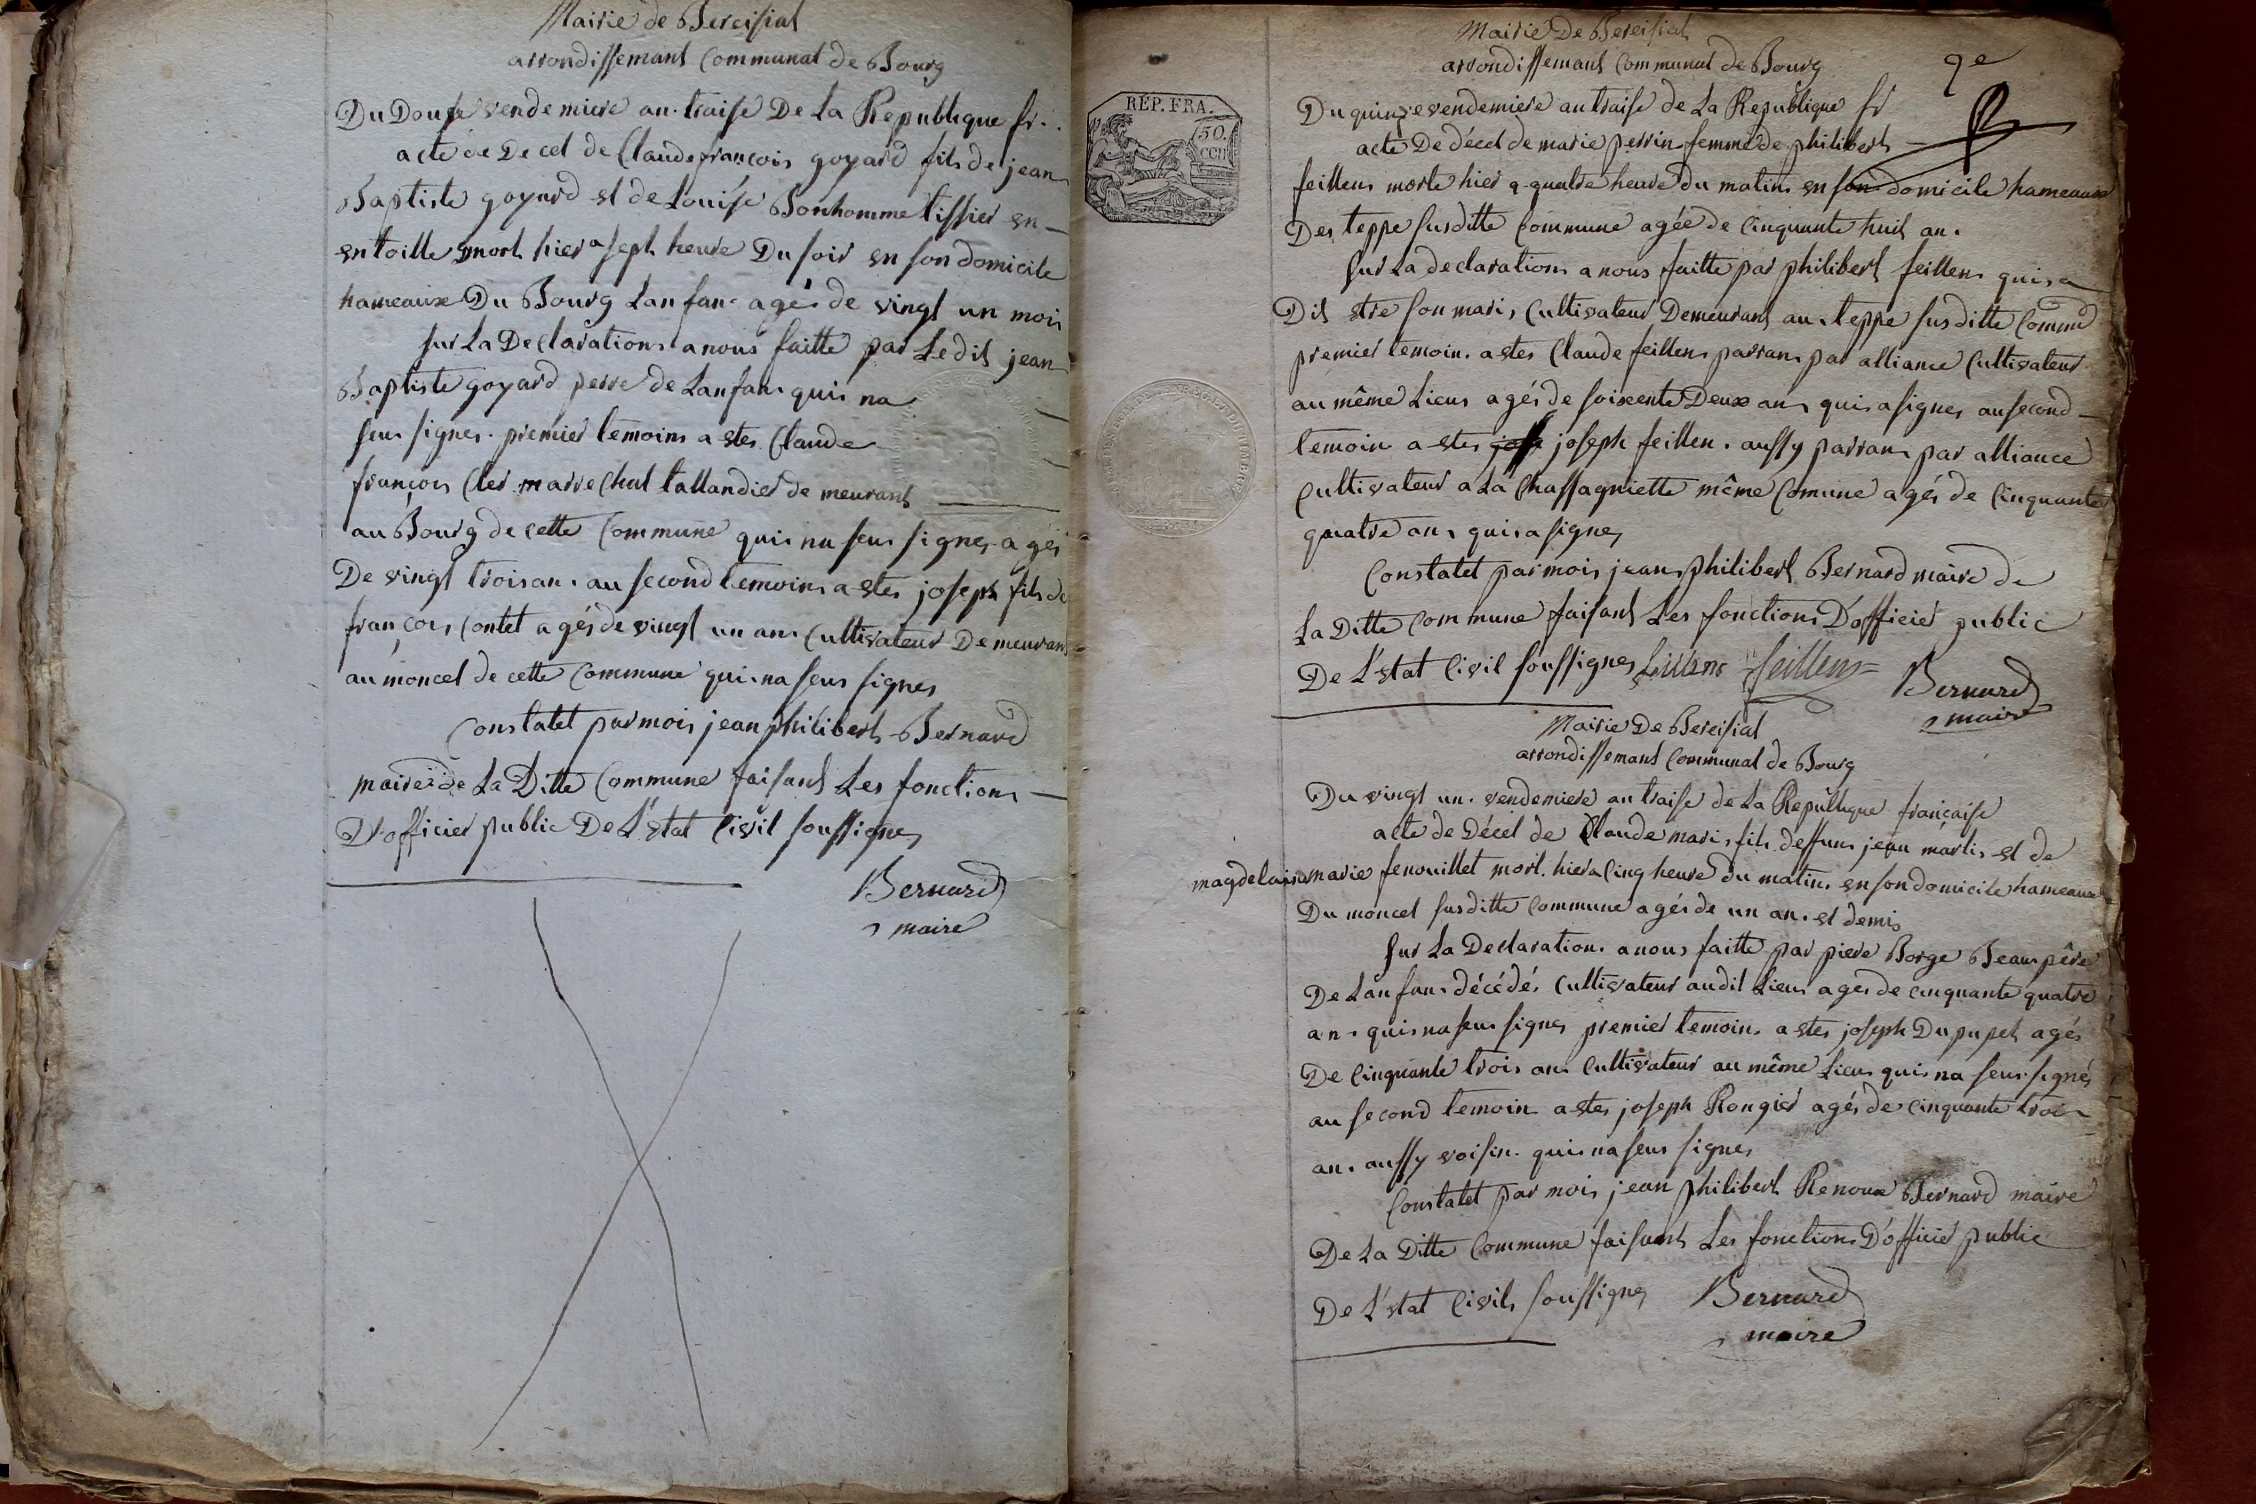 Mairie de Bereisiat
arrondissemant Communal de Bourg
Du Douse vendemiere an traise De La Republique fr.
acte de Decet de Claude françois goyard fils de jean
Baptiste goyard et de Louise Bonhomme tissier en
en toille mort hier a sept heure Du soir en son domicile
hameaux Du Bourg Lanfan agés de vingt un mois
sur La Declaration a nous faitte par Ledit jean
Baptiste goyard perre de Lanfan qui na
seu signer. premier temoins a etes Claude
françois Cler marrechal tallandier demeurant
au Bourg de cette Commune qui na seu signer agés
De vingt trois an. au second temoins a etes joseph fils de
françois Contet agés de vingt un ans Cultivateur Demeurant
au moncel de cette Commune qui na seus signes
Constatet par mois jean philibert Bernard
maire de La Ditte Commune faisant Les fonctions
D'officier public De L'etat Civil soussignes
Bernard
maire
Mairie De Bereisiat
arrondissemant Communal de Bourg
2e
REP. FRA.
50.
CEN
Du quinze vendemiere an traise de La Republique fr
acte De décet de marie perrin femme de philibert
feillens morte hier a quatre heure du matin en son domicile hameaux
Des teppe susditte Commune agée de Cinquante huit an.
sur La declaration a nous faitte par philibert feillens qui a
Dit etre son mari, Cultivateur Demeurant au teppe susditte Commu
premier temoin. a etes Claude feillens parran par alliance Cultivateur
au même Lieus agés de soixente Deux ans qui a signes au second
temoin a etes jose joseph feillen. aussy parran par alliance
Cultivateur a La Chassagniette même Comune agés de Cinquante
quatre ans qui a signes
Constatet par mois jean philibert Bernard maire de
La Ditte Commune faisant Les fonctions D'officier public
De L'etat Civil soussignes feillens feillens Bernard
maire
Mairie De Bereisiat
arrondissemant Communal de Bourg
Du vingt un. vendemiere an traise de La Republique française
acte de Décet de Claude mari, fils deffun jean marti, et de
magdelaine marie fenouillet mort. hier a Cinq heure du matin. en son domicile hameaux
Du moncel susditte Commune agés de un an. et demis
sur La Declaration. a nous faitte par piere Borge Beaupère
De Lanfan décédés Cultivateur audit Lieus ages de cinquante quatre
ans qui na seus signes premier temoins a etes joseph Dupupet agés
De Cinquante trois an. Cultivateur au même Lieus qui na seus signés
au second temoin a etes joseph Rongier agés de Cinquante trois
an. aussy voisin. qui na seus signes
Constatet par mois jean philibert Renoux Bernard maire
De La Ditte Commune faisant Les fonctions D'officier public
De L'etat Civil soussignes Bernard
maire